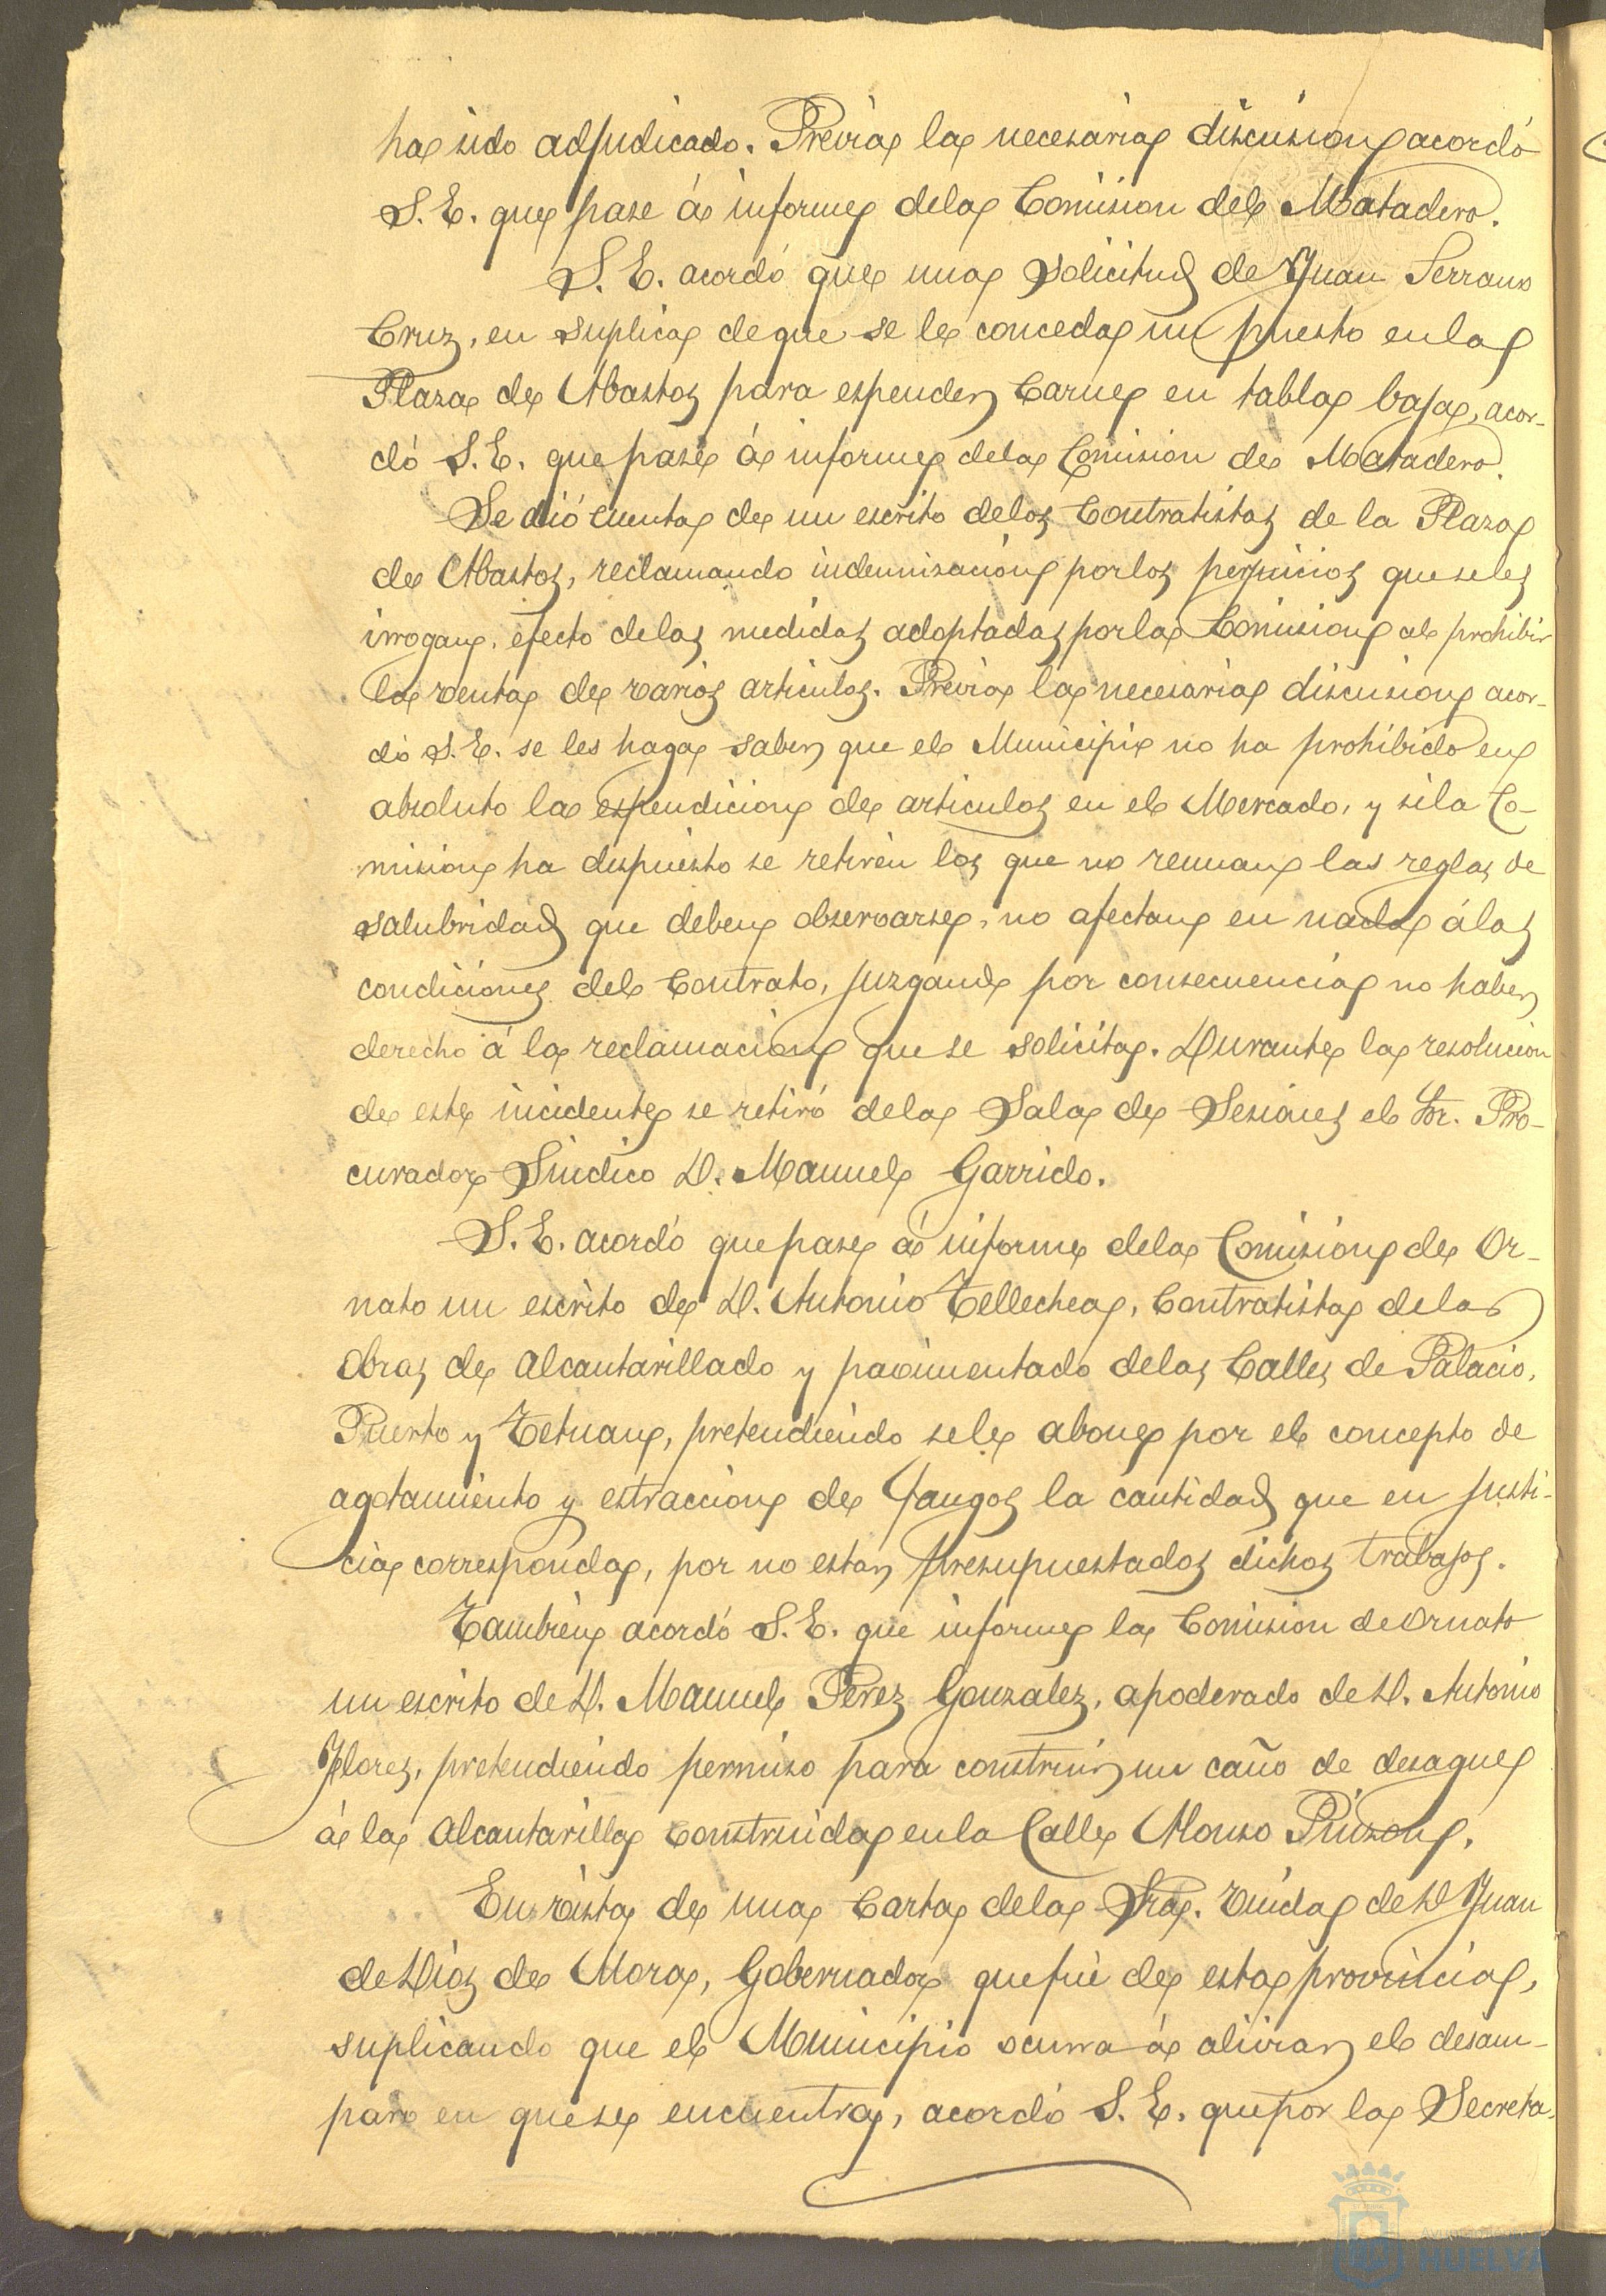 ha sido adjudicado. Prévia la necesaria discusion acordó
S. E. que pase á informe de la Comision del Matadero.
S. E. acordó que una solicitud de Juan Serrano
Cruz, en suplica de que se le conceda un puesto en la
Plaza de Abastos para espender Carne en tabla baja, acor-
dó S. E. que pase á informe de la Comision de Matadero.
Se dió cuenta de un escrito de los Contratistas de la Plaza
de Abastos, reclamando indemnisacion por los perjuicios que se les
irrogan, efecto de las medidas adoptadas por la Comision al prohibir
la venta de varios articulos. Prévia la necesaria discusion acor-
dó S. E. se les haga saber que el Municipio no ha prohibido en
absoluto la espendicion de articulos en el Mercado, y si la Co-
mision ha dispuesto se retiren los que no reunan las reglas de
salubridad que deben observarse, no afectan en nada á las
condiciones del Contrato, juzgando por consecuencia no haber
derecho á la reclamacion que se solicita. Durante la resolucion
de este incidente se retiró de la Sala de Sesiones el Sor. Pro-
curador Sindico D. Manuel Garrido.
S. E. acordó que pase á informe de la Comision de Or-
nato un escrito de D. Antonio Tellechea, Contratista de las
obras de alcantarillado y pavimentado de las Calles de Palacio,
Puerto y Tetuan, pretendiendo se le abone por el concepto de
agotamiento y estraccion de Fangos la cantidad que en justi-
cia corresponda, por no estar presupuestados dichos trabajos.
Tambien acordó S. E. que informe la Comision de Ornato
un escrito de D. Manuel Perez Gonzalez, apoderado de D. Antonio
Flores, pretendiendo permiso para construir un caño de desague
á la Alcantarilla construida en la Calle Alonso Pinzon.
En vista de una Carta de la Sra. Viuda de D Juan
de Dios de Mora, Gobernador que fué de esta provincia,
suplicando que el Municipio ocurra á aliviar el desam-
paro en que se encuentra, acordó S. E. que por la Secreta-
AYUNTAMIENTO DE
HUELVA